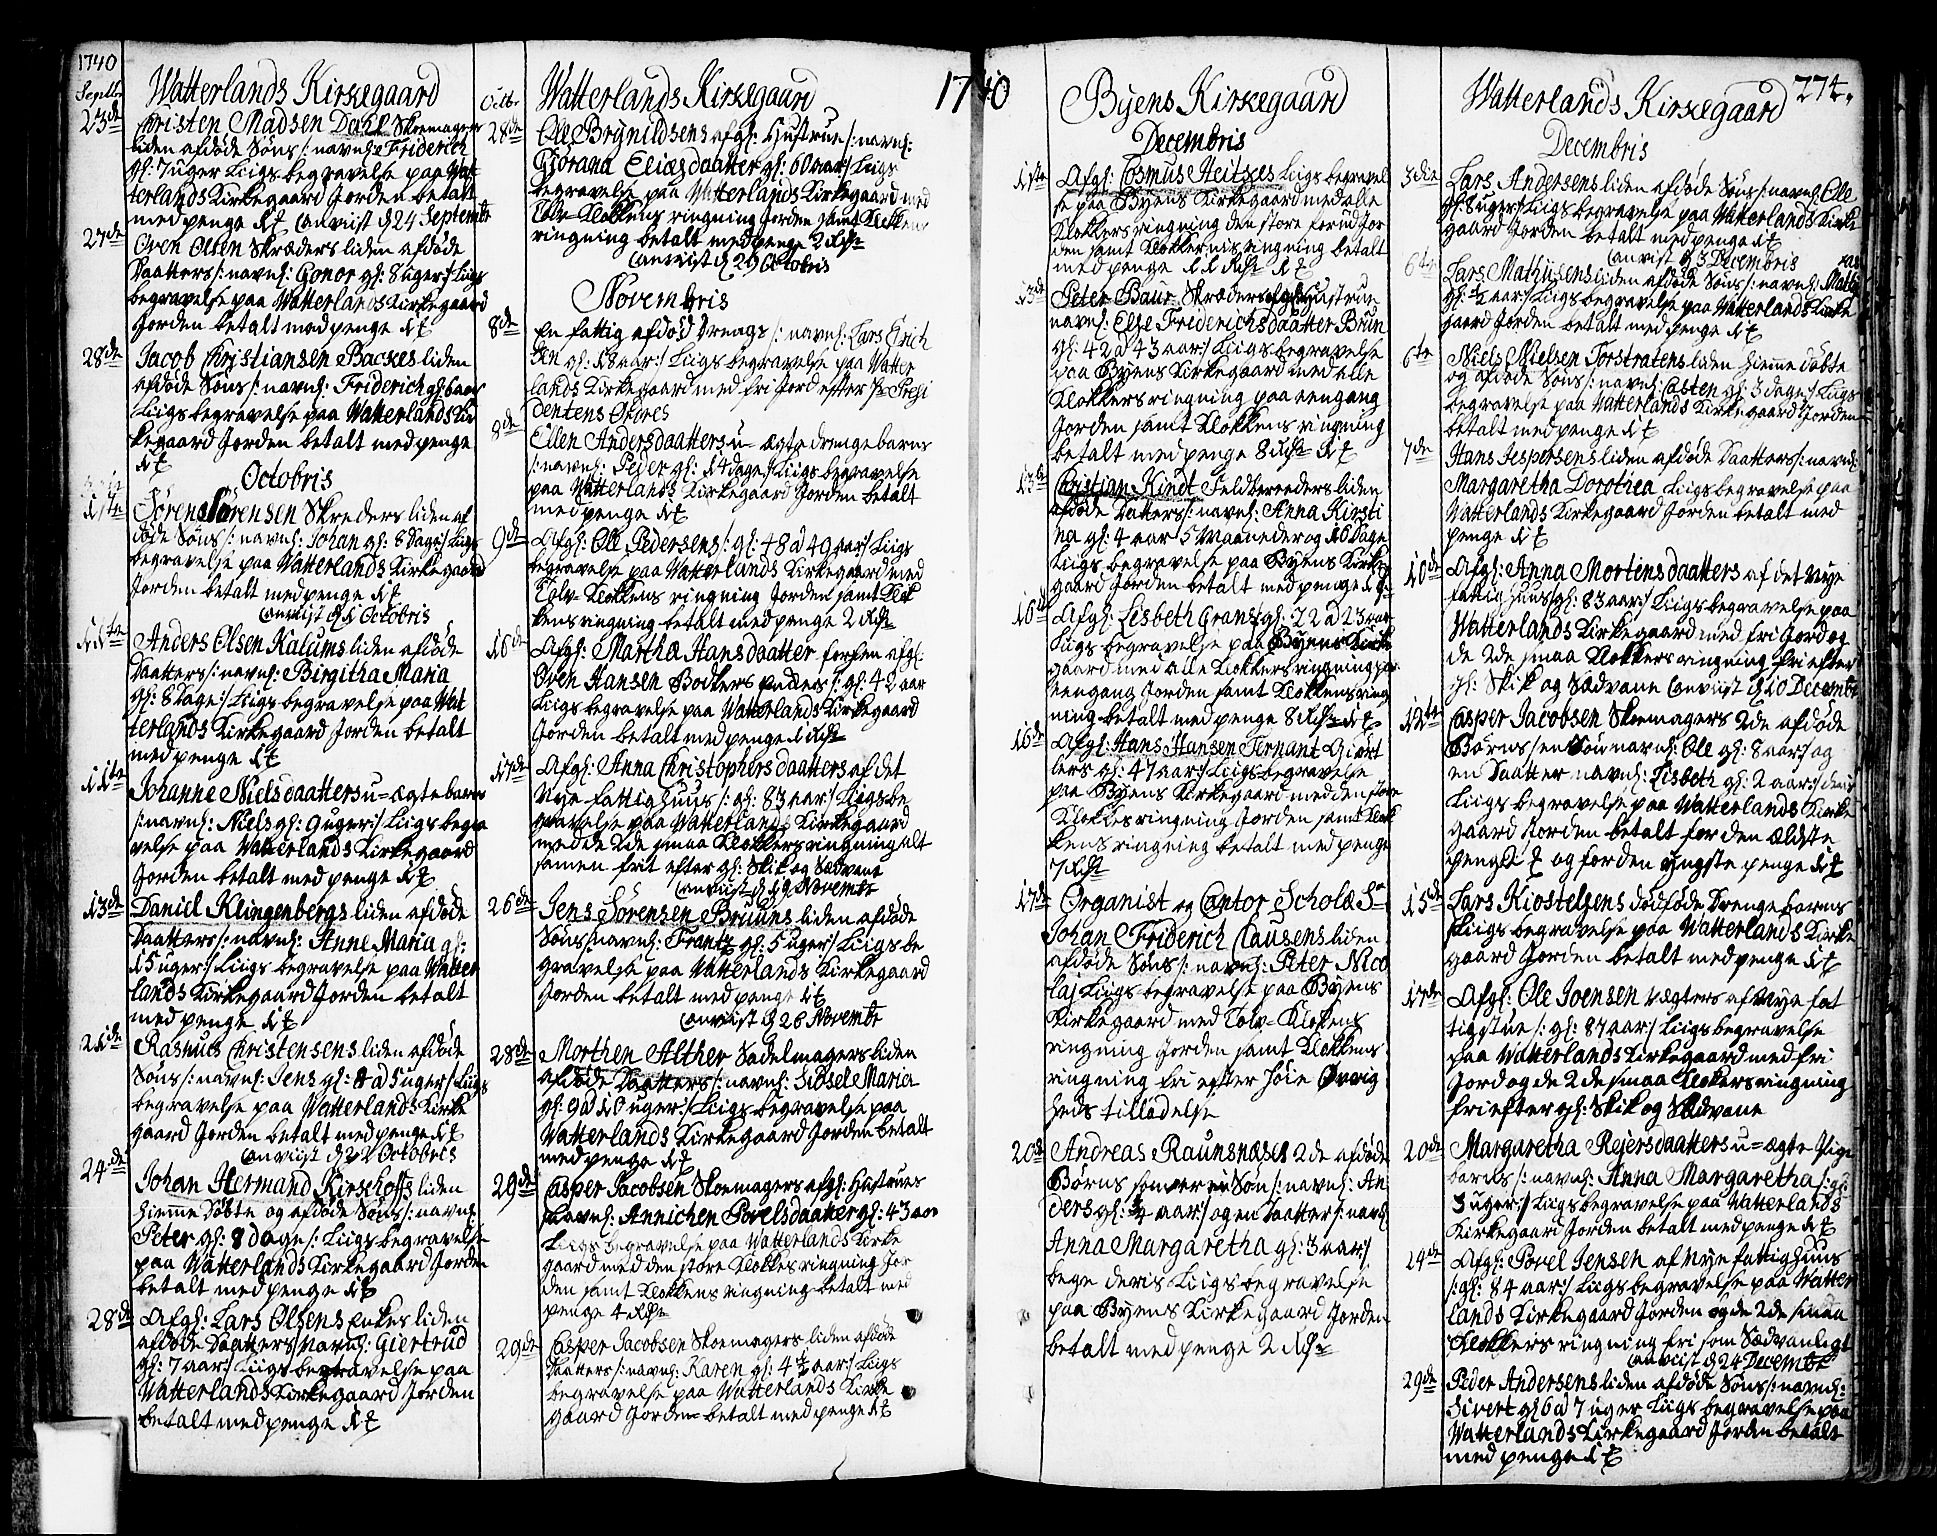 1740
Septbr
Watterlands Kirkegaard
23de
Christen Madsen Dahl Skoemagers
liden afdøde Søns /: navnl: Friderich
gl: 7 uger Liigs begravelse paa Wat
terlands Kirkegaard Jorden betalt
med penge Anviist d 24 Septembr
27de
Oven Olsen Skræders liden afdøde
Daatters /: navnl: Gonor gl: 8 uger :/ Liigs
begravelse paa Watterlands Kirkegaard
Jorden betalt med penge
28de
Jacob Christiansen Backes liden
afdøde Søns /: navnl: Friderich gl: 6 aar
Liigs begravelse paa Watterlands Kir
kegaard Jorden betalt med penge
Octobris
Sören Sörensen Skreders liden af
døde Søns /: navnl: Johan gl: 8 dage :/ Liigs
begravelse paa Watterlands Kirkegaard
Jorden betalt med penge
Anviist Octobris
11te
Anders Olsen Kalums liden afdøde
Daatters /: navnl: Birgitha Maria
gl: 8 dage :/ Liigs begravelse paa Wat
terlands Kirkegaard Jorden betalt
med penge
11te
Johanne Nielsdaatters u=ægte barns
/: navnl: Niels gl: 9 uger :/ Liigs begra
velse paa Watterlands Kirkegaard
Jorden betalt med penge
13de
Daniel Klingenbergs liden afdøde
Daatters /: navnl: Anne Maria gl:
15 uger :/ Liigs begravelse paa Watter
lands Kirkegaard Jorden betalt
med penge
21de
Rasmus Christensens liden afdøde
Søns /: navnl: Jens gl: 4 a 5 uger :/ Liigs
begravelse paa Watterlands Kirke
gaard Jorden betalt med penge
Anviist d 22 Octobris
24de
Johan Hermand Kirsehoffs liden
hiemme døbte og afdøde Søns /: navnl:
Peter gl: 8 dage :/ Liigs begravelse
paa Watterlands Kirkegaard Jorden
betalt med penge
28de
Afgl: Lars Olsens Enkes liden
afdøde Daatters navnl: Giertrud
gl: 7 aar :/ Liigs begravelse paa
Watterlands Kirkegaard Jorden
betalt med penge
Octbr
Watterlands Kirkegaard
28de
Ole Brynildsens afgl: Hustrue /: navnl:
Gjørana Eliæsdaatter gl: 60 aar :/ Liigs
begravelse paa Watterlands Kirkegaard med
Tolv-Klokkens ringning Jorden samt Klokkens
ringning betalt med penge 2 Rdr
Anviist d 29 Octobris
Novembris
8de
En fattig afdød Drengs /: navnl: Lars Erich
sen gl: 18 aar :/ Liigs begravelse paa Watter
lands Kirkegaard med fri Jord efter Hr Præsi
dentens Ordres
8de
Ellen Andersdaatters u-ægte drengebarns
/: navnl: Peder gl: 14 dage :/ Liigs begravelse
paa Watterlands Kirkegaard Jorden betalt
med penge
9de
Afgl: Ole Pedersens /: gl: 48 a 49 aar :/ Liigs
begravelse paa Watterlands Kirkegaard med
Tolv-Klokkens ringning Jorden samt Klok
kens ringning betalt med penge 2 Rdr
16de
Afgl: Martha Hansdaatter forhen afgl:
Oven Hansen Bødkers Enkes /: gl: 42 aar
Liigs begravelse paa Watterlands Kirkegaard
Jorden betalt med penge 1 Rdr
17de
Afgl: Anna Christophersdaatters af det
Nye Fattighuus /: gl: 83 aar :/ Liigs be
gravelse paa Watterlands Kirkegaard
med de 2de smaa Klokkers ringning alt
samen frit efter gl: Skik og Sædvane
Anviist d 19 Novembr
26de
Jens Sörensen Bruuns liden afdøde
Søns /: navnl: Frantz gl: 5 uger :/ Liigs be
gravelse paa Watterlands Kirkegaard
Jorden betalt med penge
Anviist d 26 Novembr
28de
Morthen Alther Sadelmagers liden
afdøde Daatters /: navnl: Sidsel Maria
gl: 9 a 10 uger :/ Liigs begravelse paa
Watterlands Kirkegaard Jorden betalt
med penge
29de
Casper Jacobsen Skoemagers afgl: Hustrues
/: navnl: Annichen Povelsdaatter gl: 43 aar
Liigs begravelse paa Watterlands Kirke
gaard med den store Klokkes ringning Jor
den samt Klokkens ringning betalt med
penge 4 Rdr
29de
Casper Jacobsen Skoemagers liden afdøde
Daatters /: navnl: Karen gl: 4 ½ aar :/ Liigs
begravelse paa Watterlands Kirke
gaard Jorden betalt med penge
1740
Byens Kirkegaard
Decembris
11te
Afgl: Cosmus Heitzes Liigs begravel
se paa Byens Kirkegaard med alle
Klokkers ringning den store forud Jor
den samt Klokkernis ringning betalt
med penge 11 Rdr
13de
Peter Baur Skræders afgl: Hustrue
navnl: Else Friderichsdaatter Brun
gl: 42 a 43 aar :/ Liigs begravelse
paa Byens Kirkegaard med alle
Klokkers ringning paa eengang
Jorden samt Klokkens ringning
betalt med penge 8 Rdr
13de
Christian Kindt Feldbereeders liden
afdøde Datters /: navnl: Anna Kirsti
na gl: 4 aar 5 Maaneder og 16 Dage
Liigs begravelse paa Byens Kirke
gaard Jorden betalt med penge
16de
Afgl: Lisbeth Grans gl: 22 a 23 aar
Liigs begravelse paa Byens Kirke
gaard med alle Klokkers ringning paa
eengang Jorden samt Klokkens ring
ning betalt med penge 8 Rdr
16de
Afgl: Hans Hansen Ternant Giørt
lers gl: 47 aar :/ Liigs begravelse
paa Byens Kirkegaard med den store
Klokkes ringning Jorden samt Klok
kens ringning betalt med penge
7 Rdr
17de
Organist og Cantor Scholæ Sr
Johan Friderich Clausens liden
afdøde Søns /: navnl: Peter Nico
laj Liigs begravelse paa Byens
Kirkegaard med Tolv-Klokkens
ringning Jorden samt Klokkens
ringning fri efter Høie Øvrig
heds tilladelse
20de
Andreas Raunsnæses 2de afdøde
Børns som er en Søn /: navnl: An
ders gl: ¾ aar :/ og en Daatter /: navnl:
Anna Margaretha gl: 3 aar :/
bege deris Liigs begravelse
paa Byens Kirkegaard Jorden
betalt med penge 2 Rdr
274.
Watterlands Kirkegaard
Decembris
3die
Lars Andersens liden afdøde Søns /: navnl: Ole
gl: 8 uger :/ Liigs begravelse paa Watterlands Kirke
gaard Jorden betalt med penge
Anviist d 3 Decembris
6te
Lars Mathisens liden afdøde Søns /: navnl: Mathis
gl: ½ aar :/ Liigs begravelse paa Watterlands Kirke
gaard Jorden betalt med penge
6te
Niels Nielsen Torstratens liden hiemme døbte
og afdøde Søns /: navnl: Casten gl: 3 dage :/ Liigs
begravelse paa Watterlands Kirkegaard Jorden
betalt med penge
7de
Hans Jespersens liden afdøde Daatters /: navnl:
Margaretha Dorothea Liigs begravelse paa
Watterlands Kirkegaard Jorden betalt med
penge
10de
Afgl: Anna Mortensdaatters af det Nye
Fattighuus /: gl: 83 aar :/ Liigs begravelse paa
Watterlands Kirkegaard med fri Jord og
de 2de smaa Klokkers ringning fri efter
gl: Skik og Sædvane Anviist d 10 Decembr
12te
Casper Jacobsen Skoemagers 2de afdøde
Børns /: en Søn navnl: Ole gl: 8 aar :/ og
en Daatter navnl: Lisbeth gl: 2 aar :/ deris
Liigs begravelse paa Watterlands Kirke
gaard Jorden betalt for den ældste
penge og for den yngste penge
15de
Lars Kiostelsens dødføde Drengebarns
Liigs begravelse paa Watterlands Kirke
gaard Jorden betalt med penge
17de
Afgl: Ole Joensen Vægters af Nye Fat
tigstue /: gl: 87 aar :/ Liigs begravelse
paa Watterlands Kirkegaard med fri
Jord og de 2de smaa Klokkers ringning
fri efter gl: Skik og Sædvane
20de
Margaretha Rejersdaatters u=ægte Pige
barns /: navnl: Anna Margaretha /: gl:
3 uger :/ Liigs begravelse paa Watterlands
Kirkegaard Jorden betalt med penge
24de
Afgl: Povel Jensen af Nye Fattighuus
/: gl: 84 aar :/ Liigs begravelse paa Watter
lands Kirkegaard Jorden og de 2de smaa
Klokkers ringning fri som Sædvanligt
Anviist d 24 Decembr
29de
Peder Andersens liden afdøde Søns /: navnl:
Sivert gl: 6 a 7 uger Liigs begravelse paa
Watterlands Kirkegaard Jorden betalt
med penge